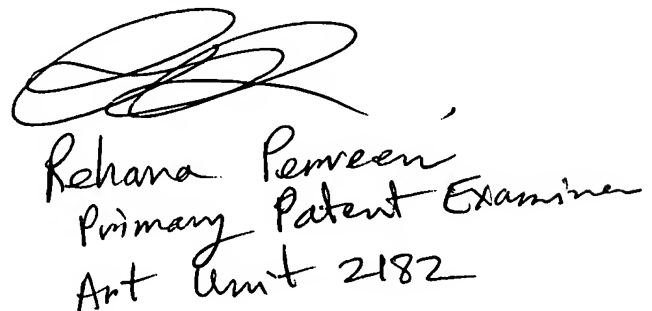 Rehana Perveen
Primary Patent Examiner
Art Unit 2182